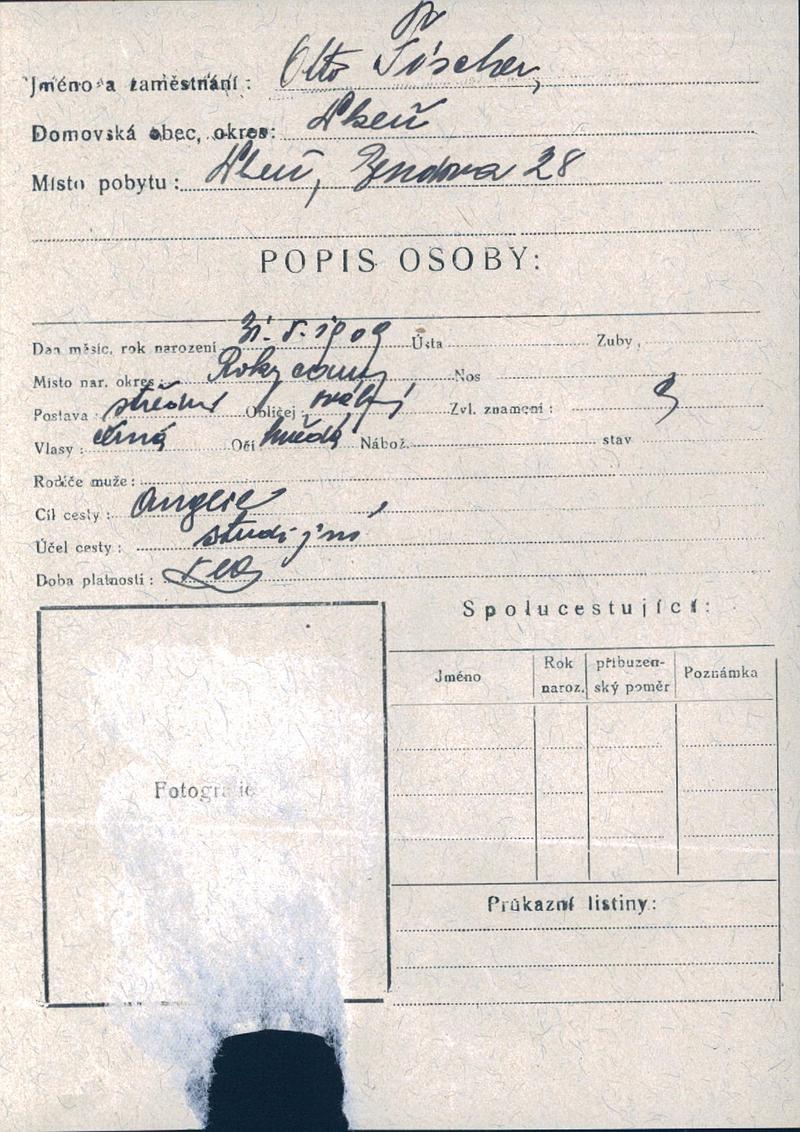 Dr
Jméno a zaměstnání: Otto Fischer,
Domovská obec, okres: Plzeň
Místo pobytu: Plzeň, 28
POPIS OSOBY:
Den měsíc, rok narození 31. 5. 1909 Ústa Zuby
Místo nar. okres Rokycany Nos
Postava: střední Obličej: oválný Zvl. znamení:
Vlasy: černé Oči hnědé Nábož. stav
Rodiče muže:
Cíl cesty: Anglie
Účel cesty: studijní
Doba platnosti:
Spolucestující:
Jméno Rok naroz. příbuzenský poměr Poznámka
Fotografie
Průkazní listiny: